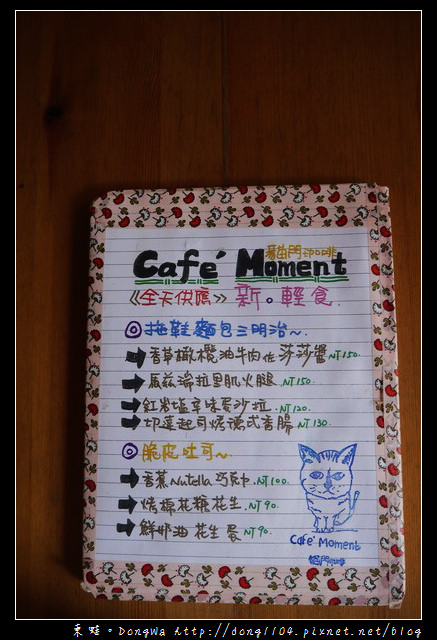 貓門咖啡
Café Moment
《全天供應》新。輕食.
拖鞋麵包三明治~
香草橄欖油牛肉佐莎莎醬 NT150.
馬茲瑞拉里肌火腿. NT150.
紅岩塩辛味安沙拉. NT120.
切達起司煙燻式香腸 NT130.
脆皮吐司~
香蕉Nutella巧克力.NT100.
烤棉花糖花生.NT90.
鮮奶油花生蛋NT90.
Café Moment
貓門咖啡
東蛙。DongWa http://dong1104.pixnet.net/blog